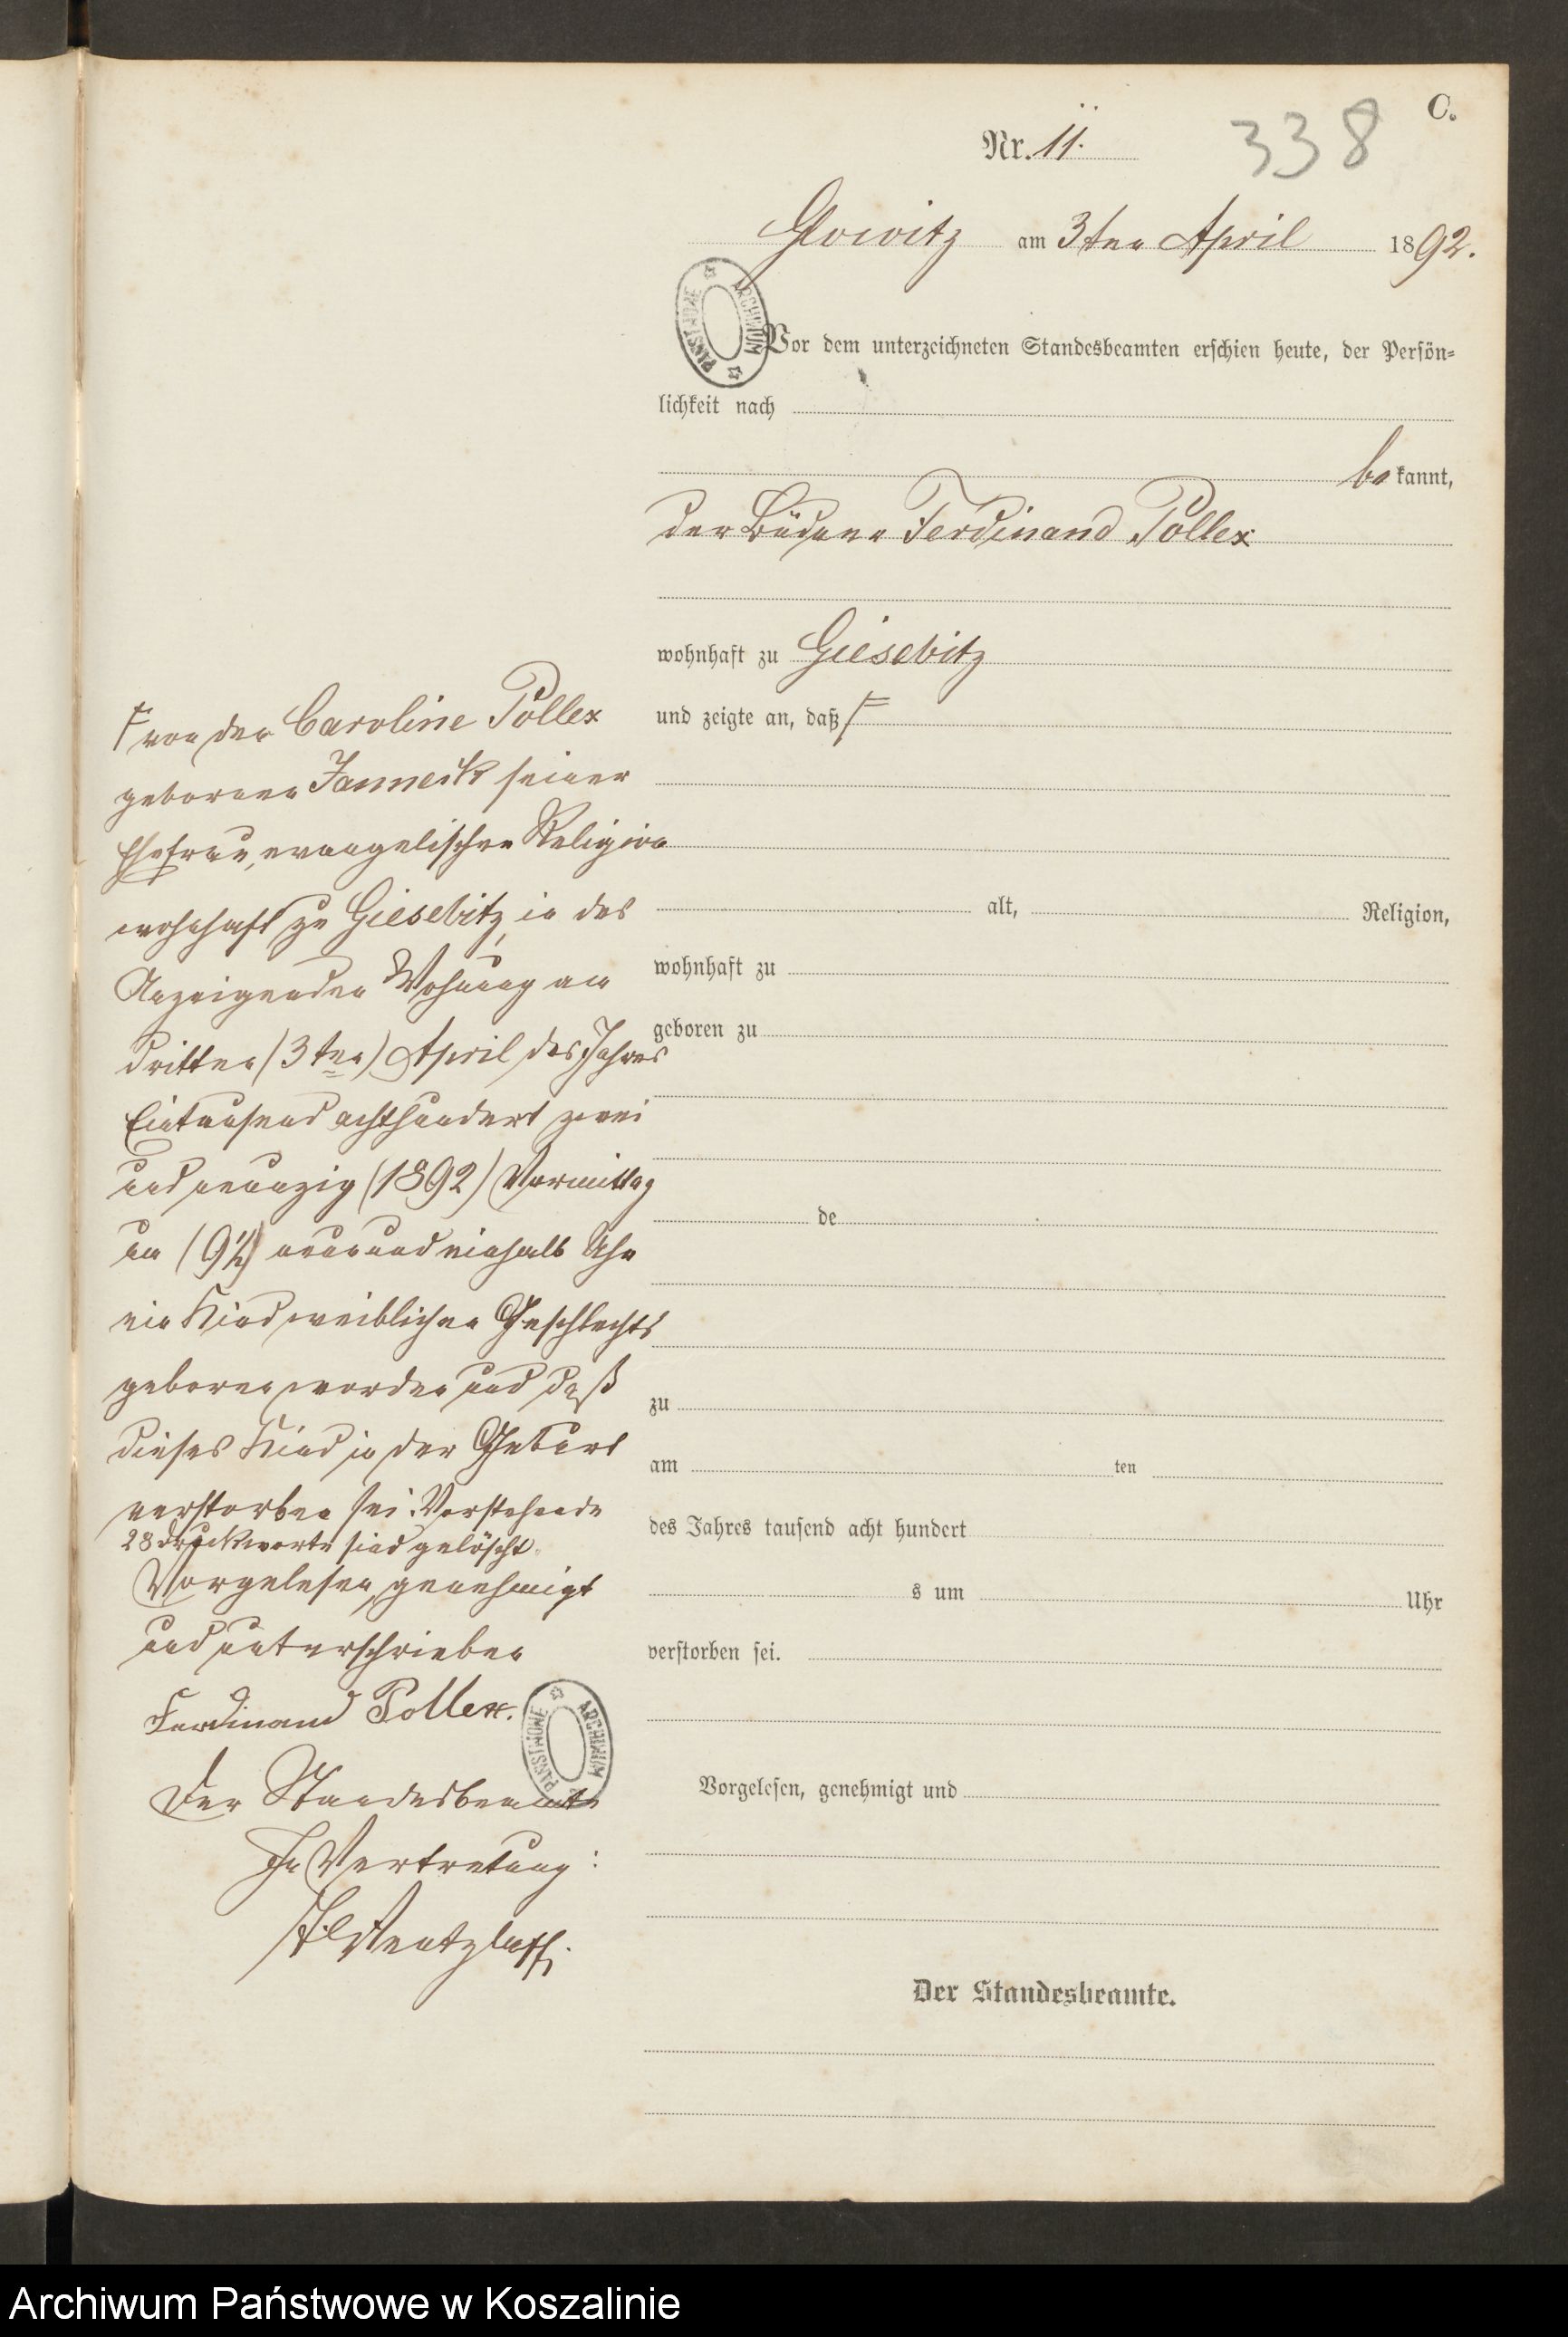 C.
Nr. 11.
338
Glowitz am 3ten April 1892.
Vor dem unterzeichneten Standesbeamten erschien heute, der Persön=
lichkeit nach
bekannt,
der Büdner Ferdinand Pollex
wohnhaft zu Giesebitz
und zeigte an, daß F
F von der Caroline Pollex
geborenen Janneck seiner
Ehefrau, evangelischer Religion
wohnhaft zu Giesebitz, in des
Anzeigenden Wohnung am
dritten (3ten) April des Jahres
Eintausend achthundert zwei
und neunzig (1892) Vormittag
um (9½) neun und einhalb Uhr
ein Kind weiblichen Geschlechts
geboren worden und daß
dieses Kind in der Geburt
verstorben sei. Vorstehende
28 Druckworte sind gelöscht.
Vorgelesen, genehmigt
und unterschrieben
Ferdinand Pollex.
Der Standesbeamte
In Vertretung:
alt, Religion,
wohnhaft zu
geboren zu
de
zu
am ten
des Jahres tausend acht hundert
s um Uhr
verstorben sei.
Vorgelesen, genehmigt und
Der Standesbeamte.
ARCHIWUM PAŃSTWOWE
ARCHIWUM PAŃSTWOWE
Archiwum Państwowe w Koszalinie